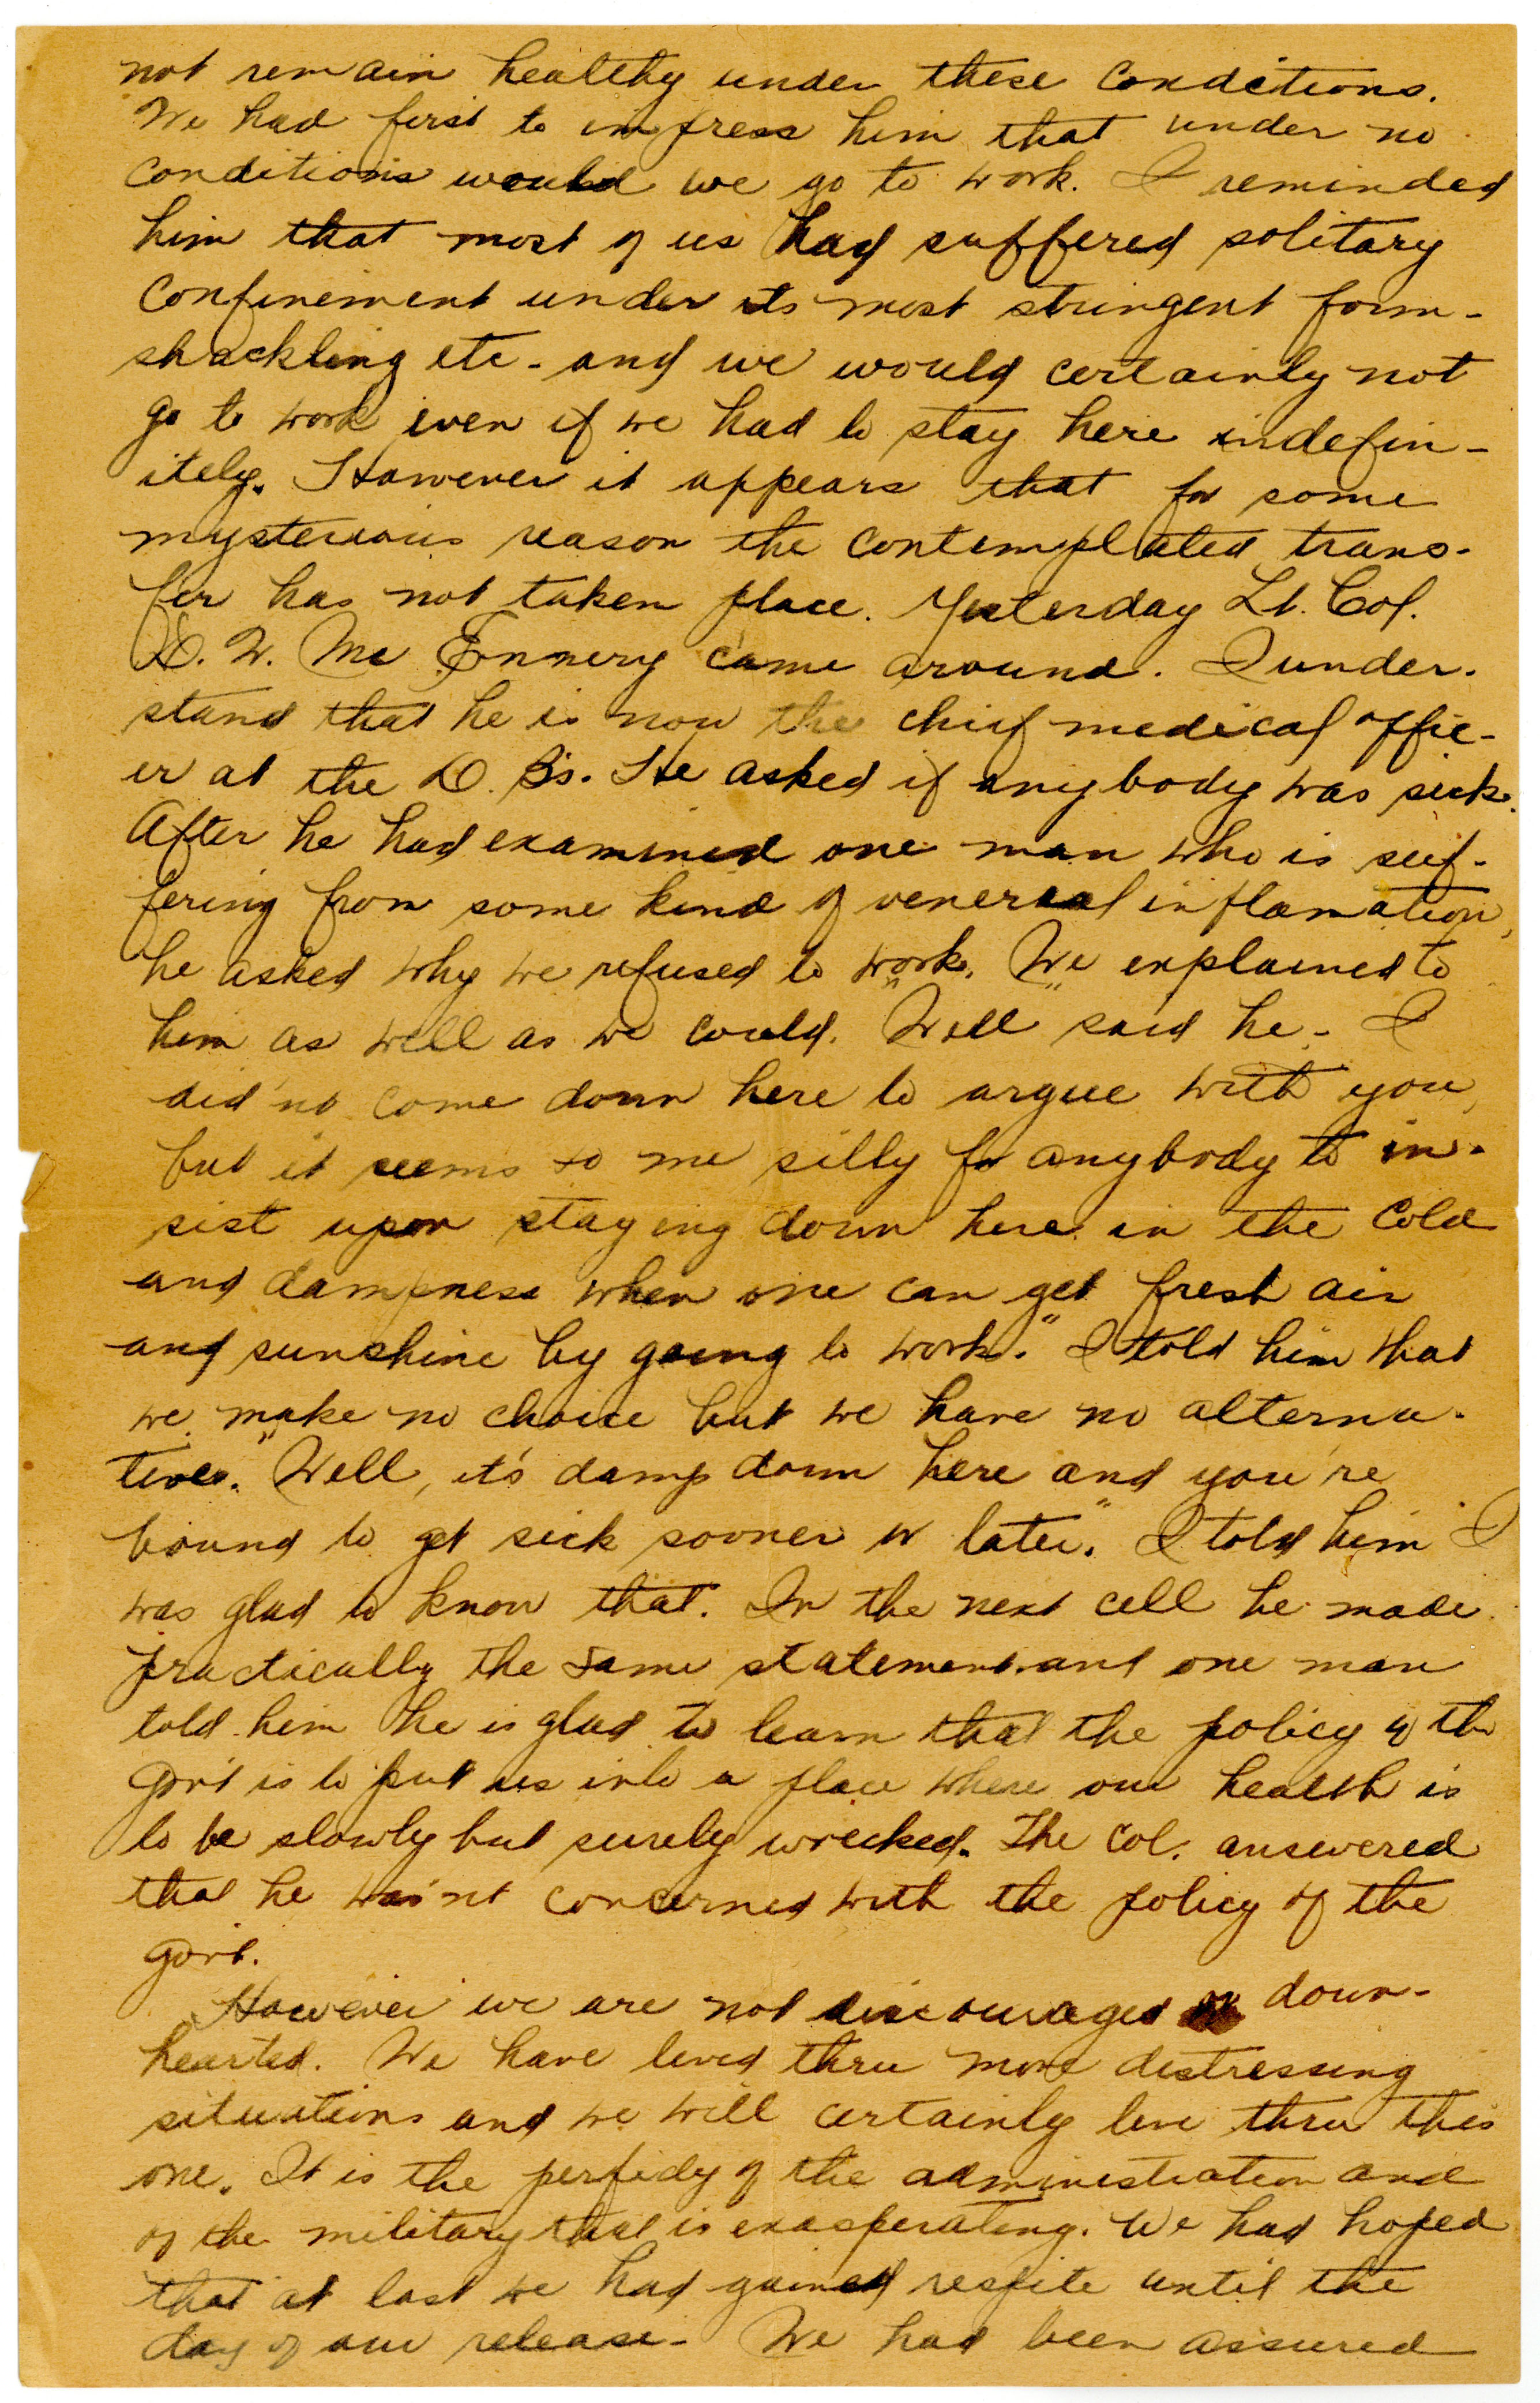 not remain healthy under these conditions.
We had first to impress him that under no
conditions would we go to work. I reminded
him that most of us had suffered solitary
confinement under its most stringent form -
shackling etc - and we would certainly not
go to work even if we had to stay here indefin-
itely. However it appears that for some
mysterious reason the contemplated trans-
fer has not taken place. Yesterday Lt. Col.
D. W. Mc Ennery came around. I under-
stand that he is now the chief medical offic-
er at the D. B's. He asked if anybody was sick.
After he had examined one man who is suf-
fering from some kind of venereal inflamation,
he asked why we refused to work. We explained to
him as well as we could. "Well" said he - I
did'nt come down here to argue with you,
but it seems to me silly for anybody to in-
sist upon staying down here in the cold
and dampness when one can get fresh air
and sunshine by going to work." I told him that
we make no choice but we have no alterna-
tive. "Well, it's damp down here and you're
bound to get sick sooner or later." I told him I
was glad to know that. In the next cell he made
practically the same statement and one man
told him he is glad to learn that the policy of the
gov't is to put us into a place where our health is
to be slowly but surely wrecked. The Col. answered
that he was'nt concerned with the policy of the
gov't.
However we are not discouraged or down-
hearted. We have lived thru more distressing
situations and we will certainly live thru this
one. It is the perfidy of the administration and
of the military that is exasperating. We had hoped
that at last we had gained respite until the
day of our release - We had been assured